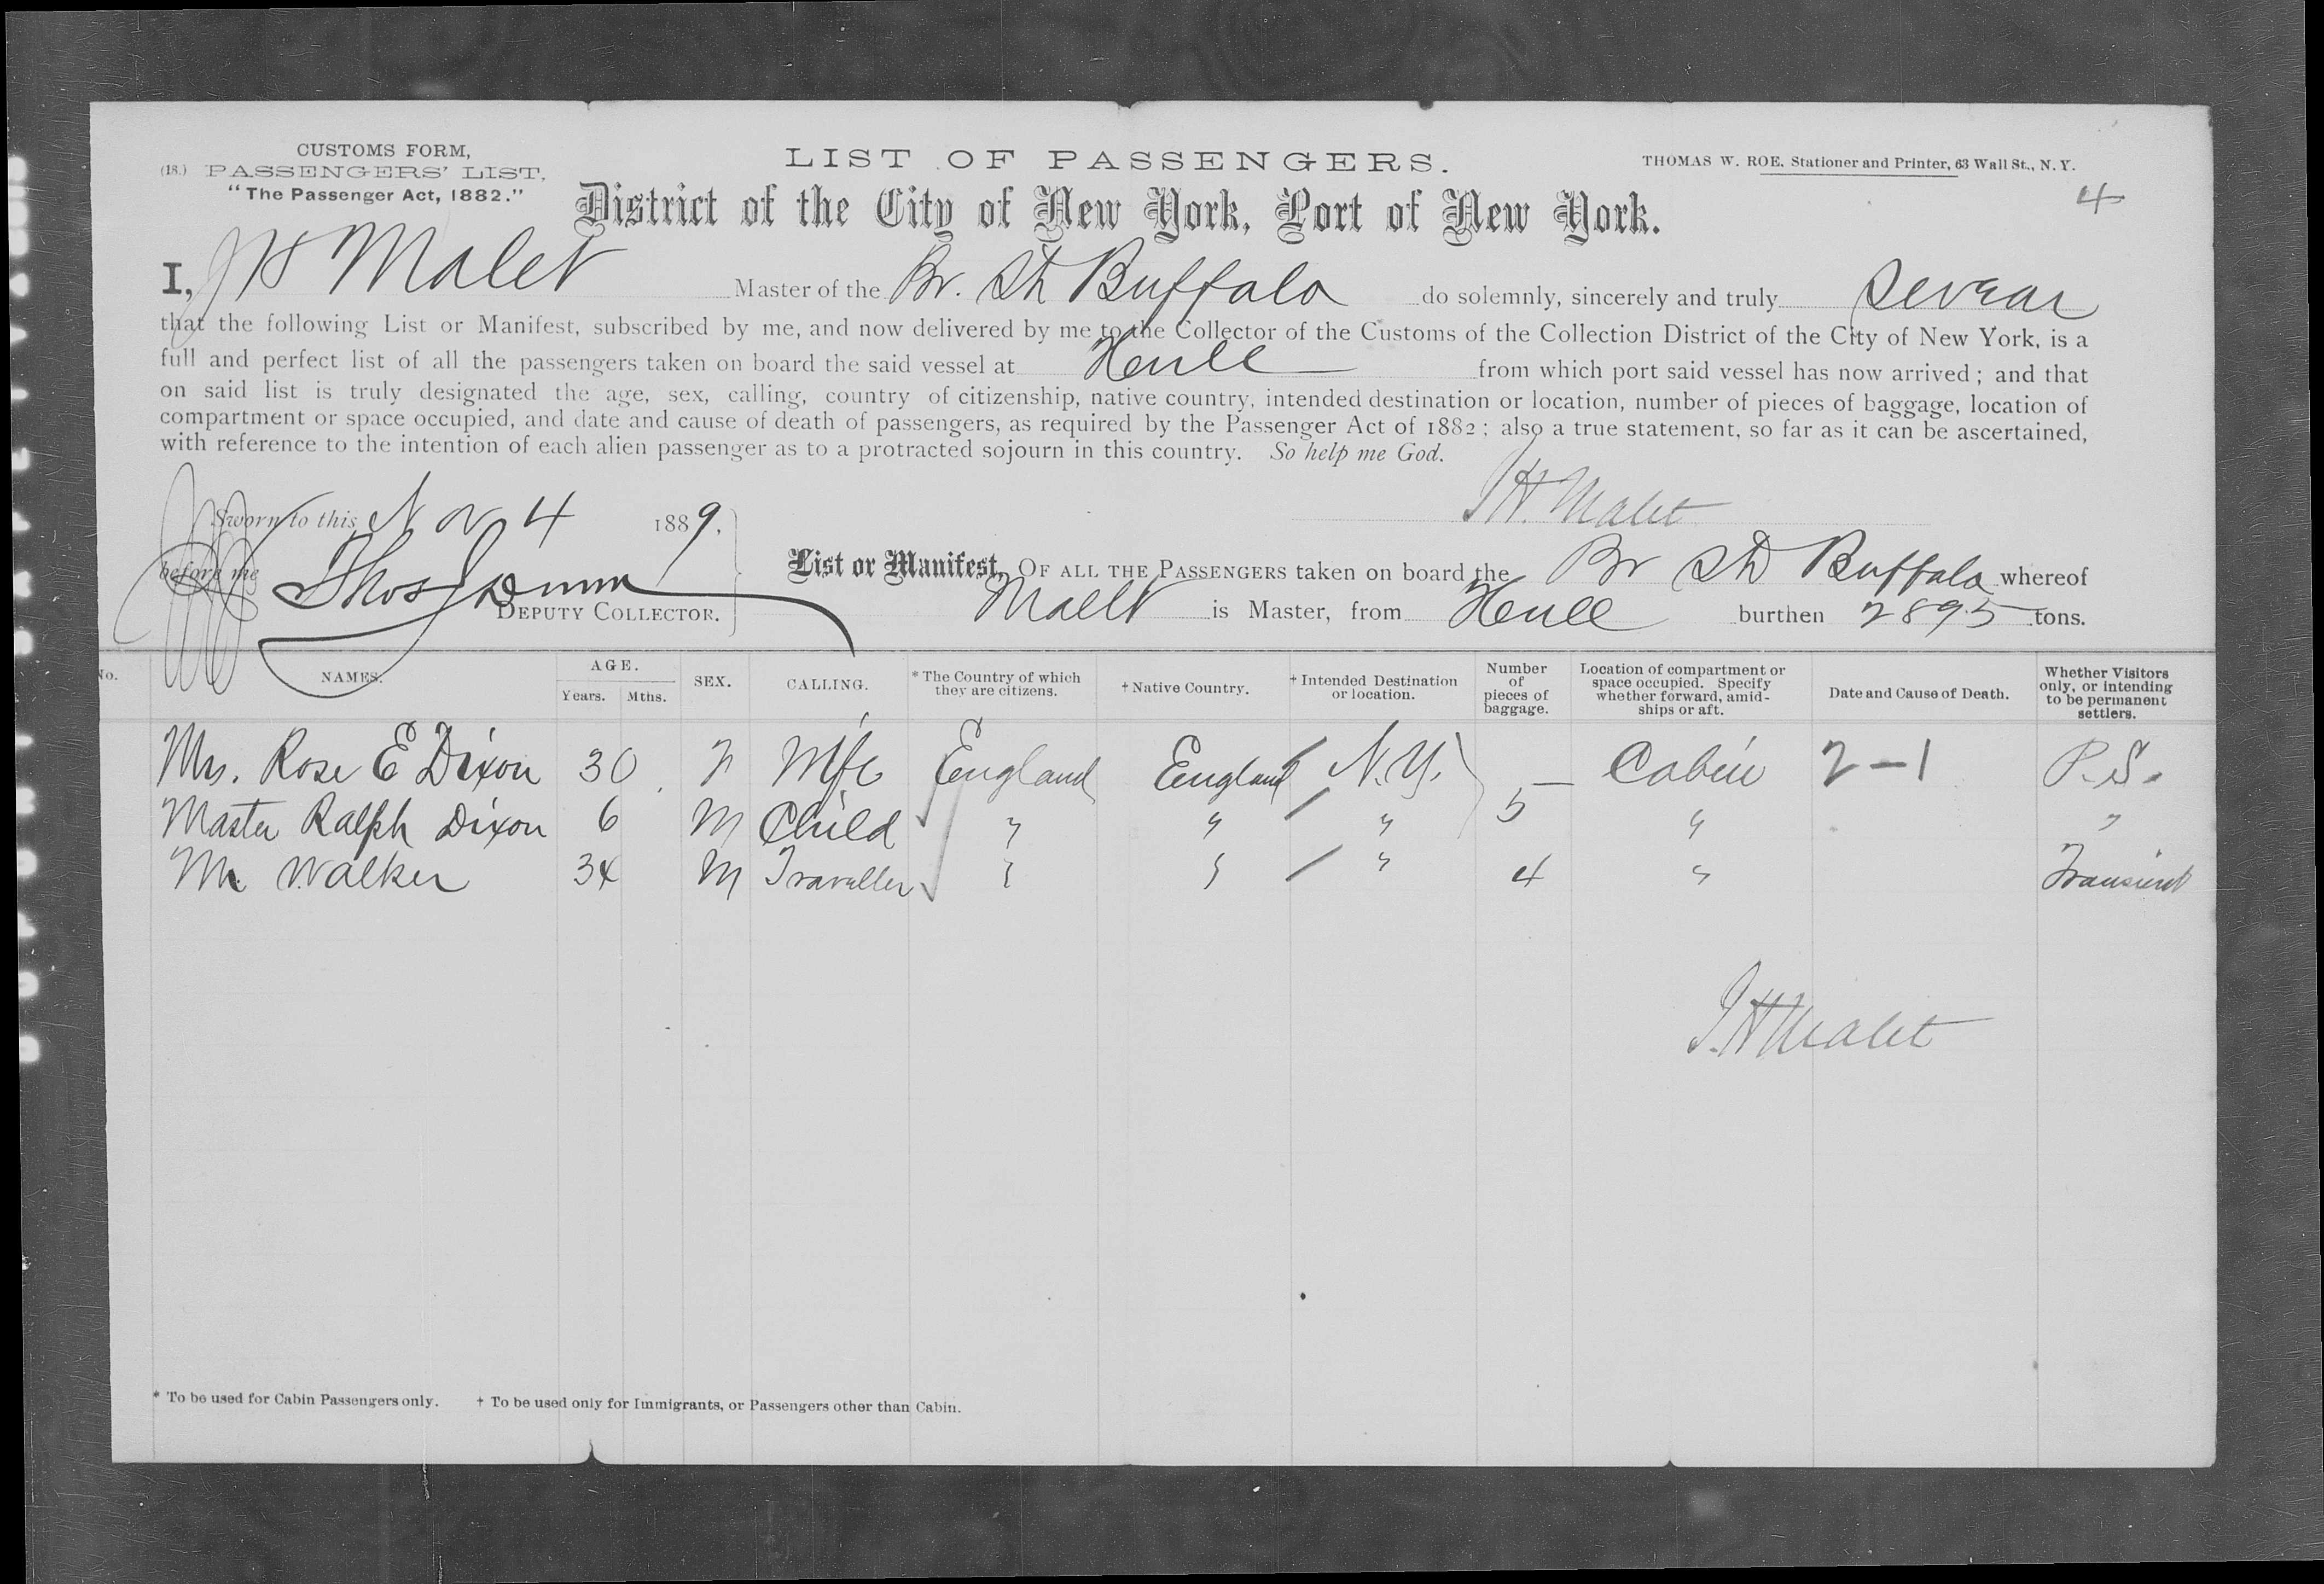 CUSTOMS FORM,
(18.) PASSENGERS' LIST,
"The Passenger Act, 1882."
LIST OF PASSENGERS.
THOMAS W. ROE, Stationer and Printer, 63 Wall St., N. Y.
4
District of the City of New York, Port of New York.
I, J H Malet Master of the Br. Str Buffalo do solemnly, sincerely and truly swear
that the following List or Manifest, subscribed by me, and now delivered by me to the Collector of the Customs of the Collection District of the City of New York, is a
full and perfect list of all the passengers taken on board the said vessel at Hull from which port said vessel has now arrived; and that
on said list is truly designated the age, sex, calling, country of citizenship, native country, intended destination or location, number of pieces of baggage, location of
compartment or space occupied, and date and cause of death of passengers, as required by the Passenger Act of 1882; also a true statement, so far as it can be ascertained,
with reference to the intention of each alien passenger as to a protracted sojourn in this country. So help me God.
J H. Malet
Sworn to this Nov 4 1889.
before me Thos J Dunn
DEPUTY COLLECTOR.
List or Manifest, OF ALL THE PASSENGERS taken on board the Br Str Buffalo whereof
Malet is Master, from Hull burthen 2895 tons.
No. NAMES. AGE. Years. Mths. SEX. CALLING. * The Country of which they are citizens. † Native Country. † Intended Destination or location. Number of pieces of baggage. Location of compartment or space occupied. Specify whether forward, amidships or aft. Date and Cause of Death. Whether Visitors only, or intending to be permanent settlers.
Mrs. Rose E Dixon 30 Wife England England N.Y. 5 Cabin 2-1 P.S.
Master Ralph Dixon 6 M Child " " " " "
Mr. Walker 34 M Traveller " " " 4 " Transient
J. H Malet
* To be used for Cabin Passengers only. † To be used only for Immigrants, or Passengers other than Cabin.